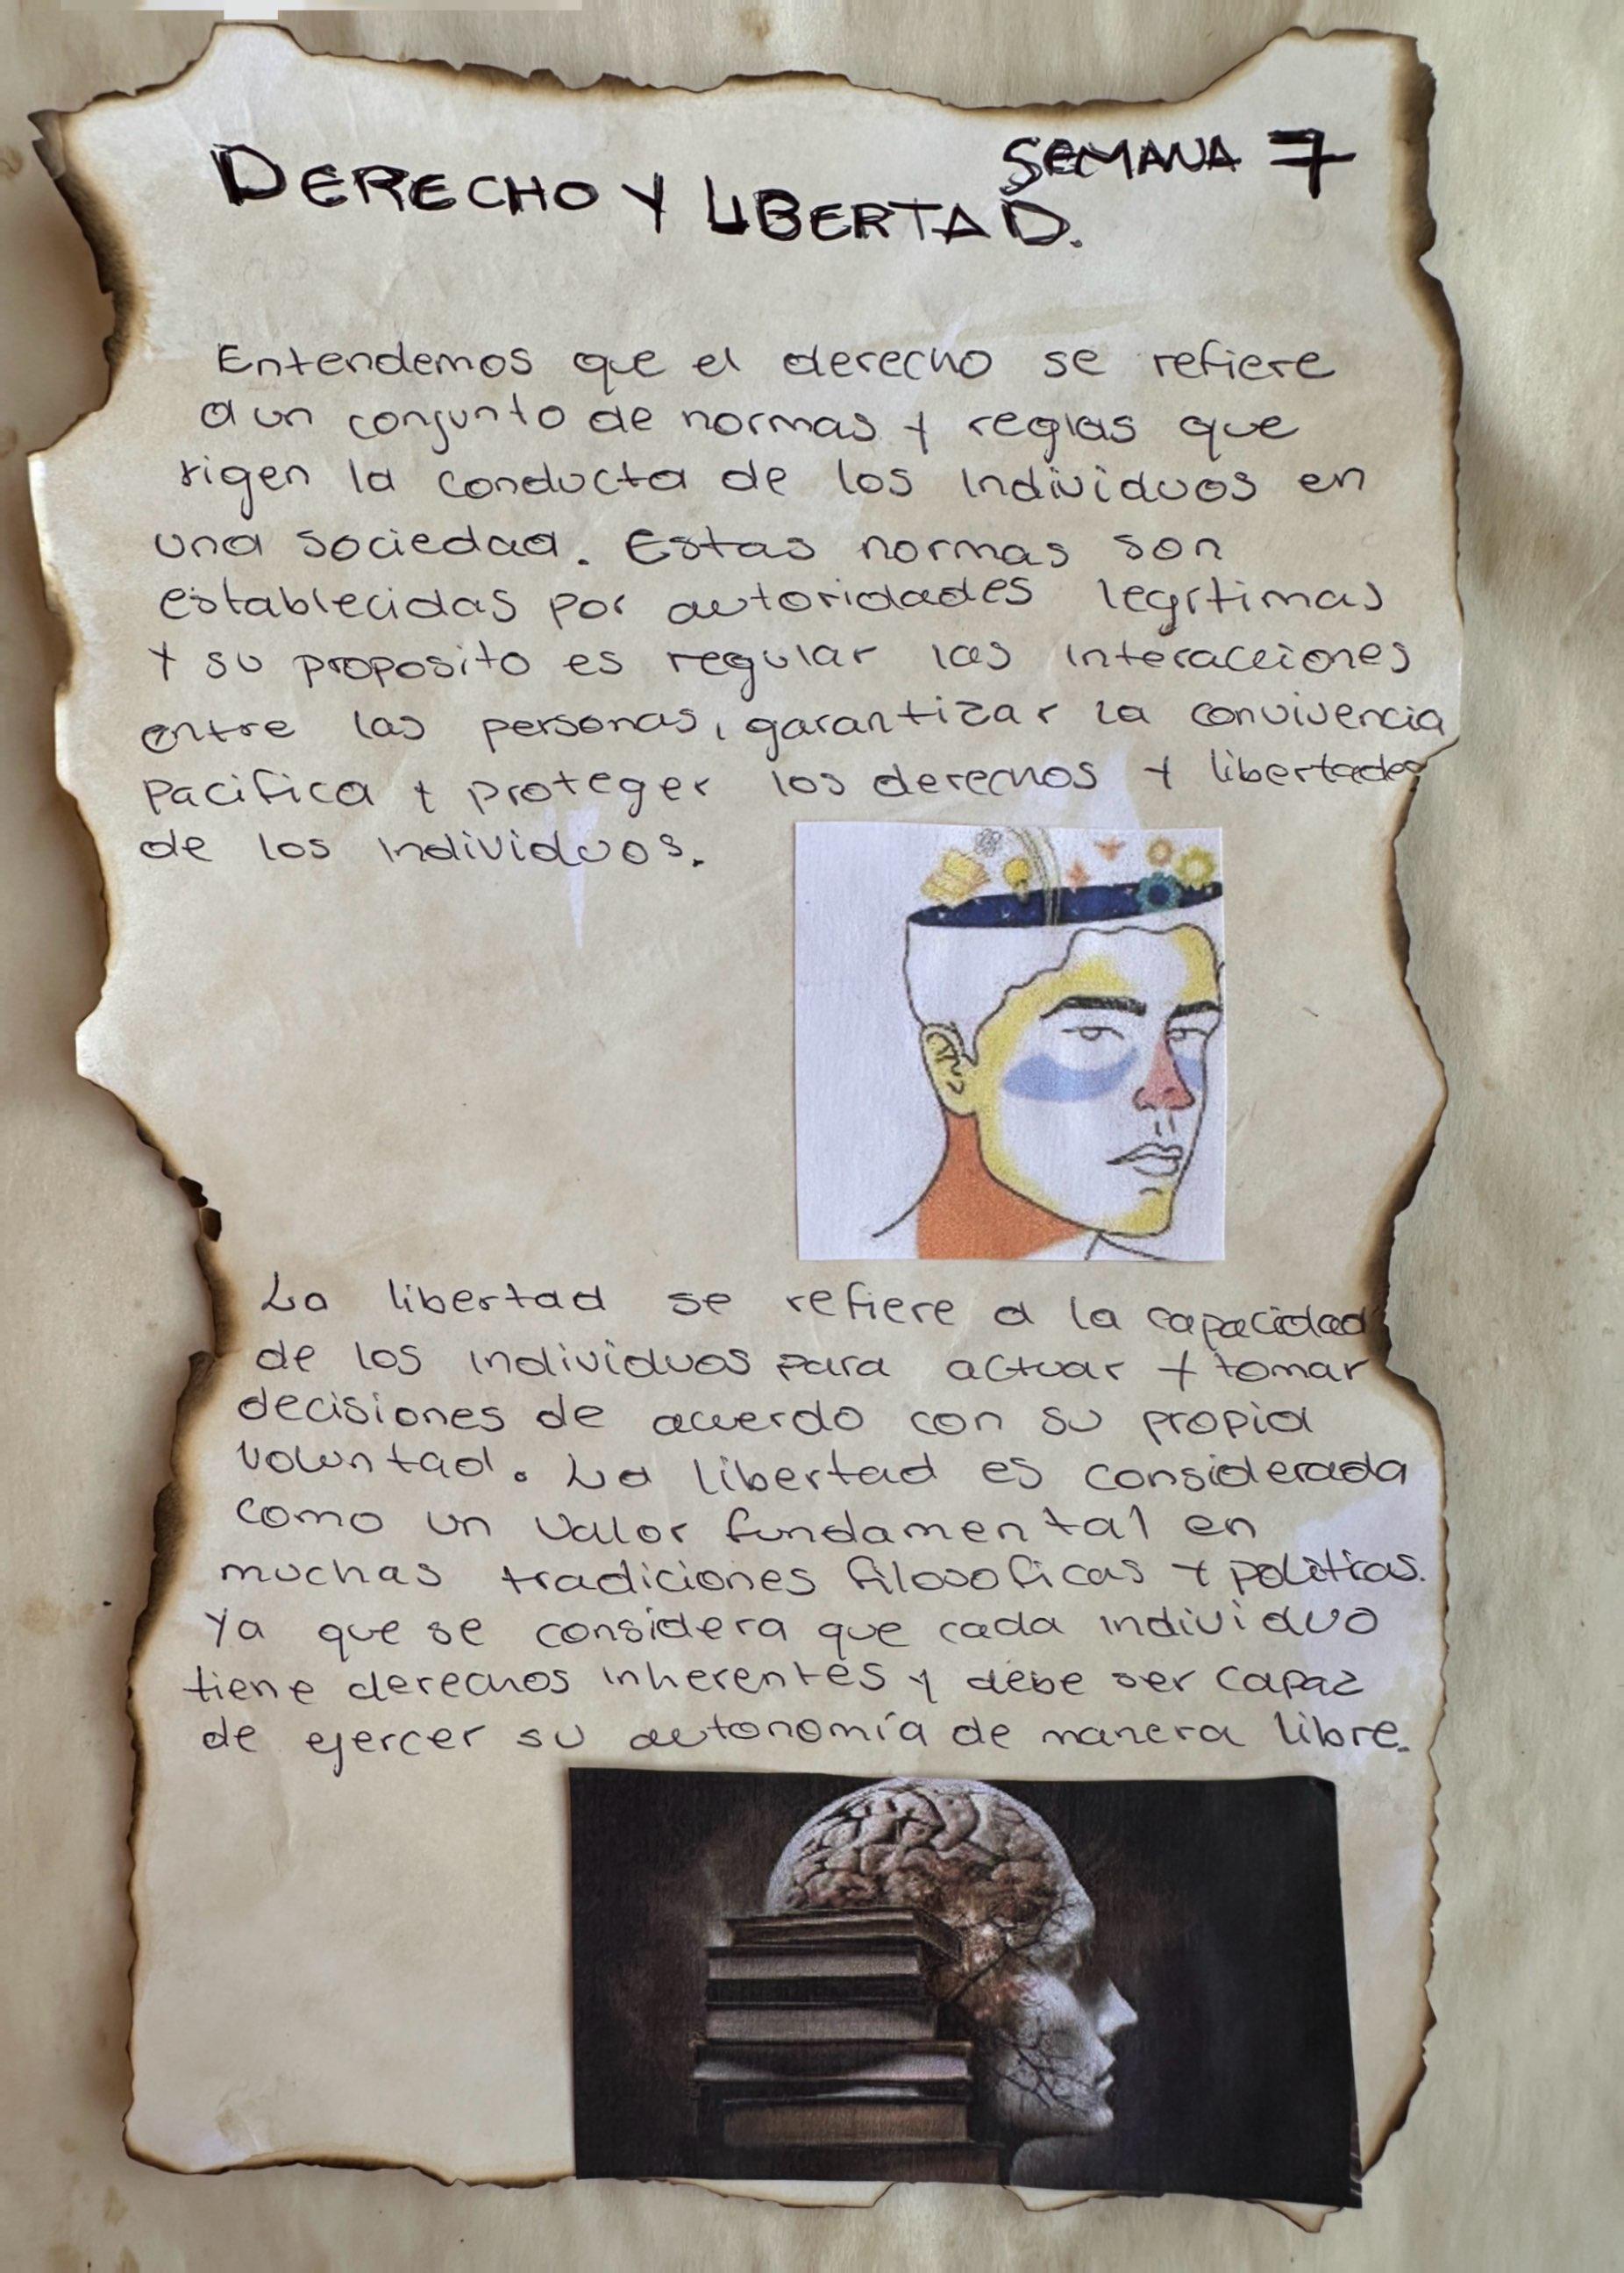 SEMANA 7
DERECHO Y LIBERTAD.
Entendemos que el derecho se refiere
a un conjunto de normas y reglas que
rigen la conducta de los individuos en
una sociedad. Estas normas son
establecidas por autoridades legítimas
y su proposito es regular las interacciones
entre las personas, garantizar la convivencia
pacifica y proteger los derechos y libertades
de los individuos.
La libertad se refiere a la capacidad
de los individuos para actuar y tomar
decisiones de acuerdo con su propia
voluntad. La libertad es considerada
como un valor fundamental en
muchas tradiciones filosoficas y políticas.
Ya que se considera que cada individuo
tiene derechos inherentes y debe ser capaz
de ejercer su autonomía de manera libre.